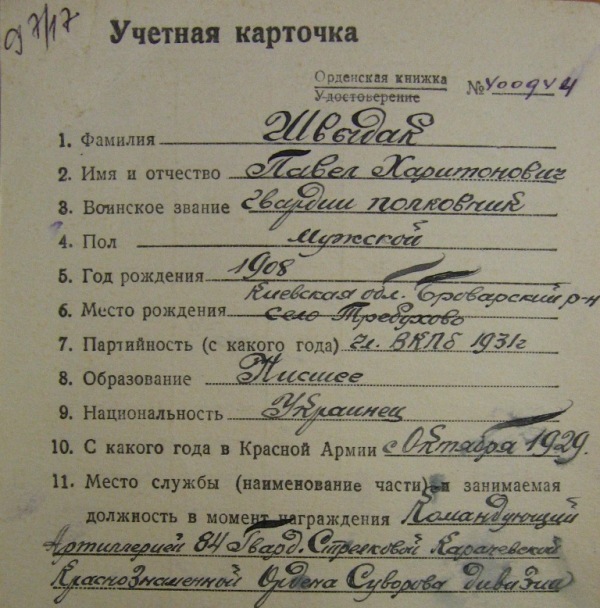 97/17
Учетная карточка
Орденская книжка
Удостоверение
№ 400944
1. Фамилия Швыдак
2. Имя и отчество Павел Харитонович
3. Воинское звание Гвардии полковник
4. Пол мужской
5. Год рождения 1908
Киевская обл. Броварский р-н
6. Место рождения село Требухово
7. Партийность (с какого года) чл. ВКПб 1931г
8. Образование Высшее
9. Национальность Украинец
10. С какого года в Красной Армии с Октября 1929.
11. Место службы (наименование части) и занимаемая
должность в момент награждения Командующий
Артиллерией 84 Гвард. Стрелковой Карачевской
Краснознаменной Ордена Суворова дивизии